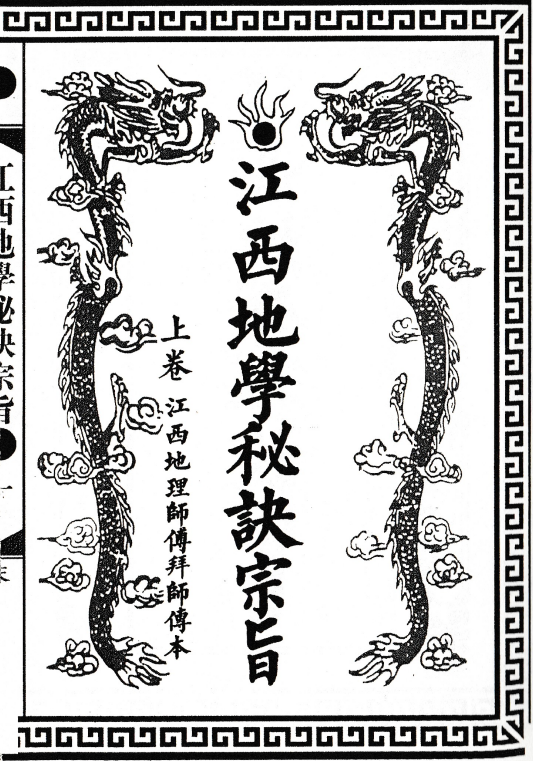 江西地學秘訣宗旨
上卷 江西地理師傅拜師傳本
江西地學秘訣宗旨
一